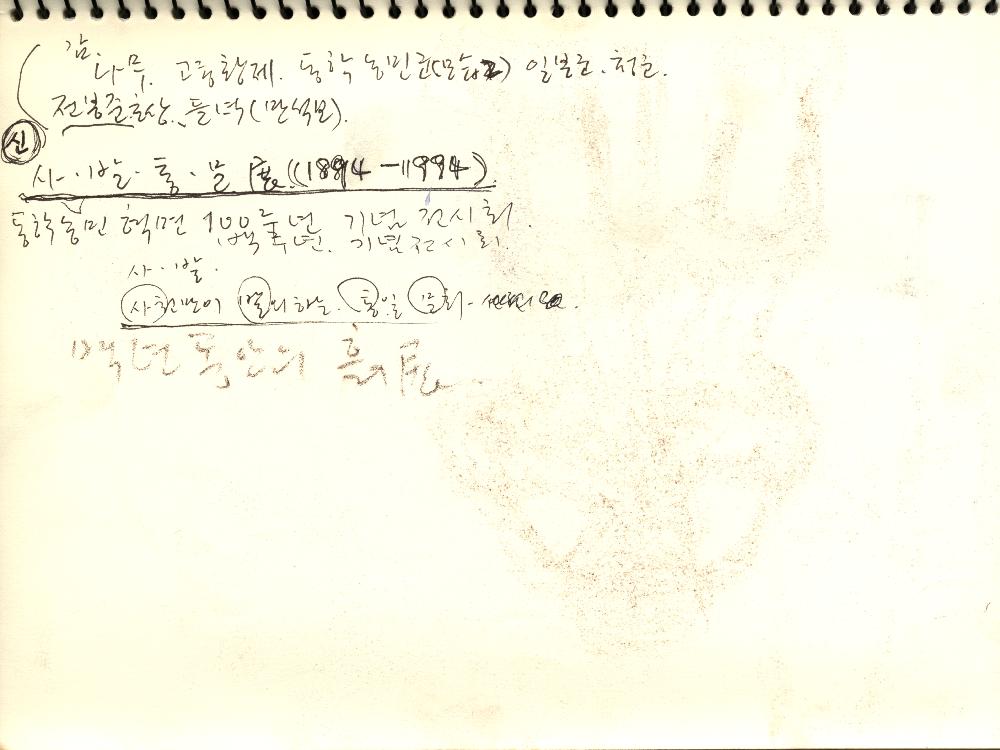 감.
나무. 고종황제. 동학농민군(모습2) 일본군. 청군.
전봉준초상. 들녘(만석보).
신
사·발·통·문 展 (1894-1994)
동학농민 혁명 100주년 기념 전시회.
100주년. 기념전시회.
사·발.
사천만이 벌이하는 통일 문화-
백년동안의 흙 展